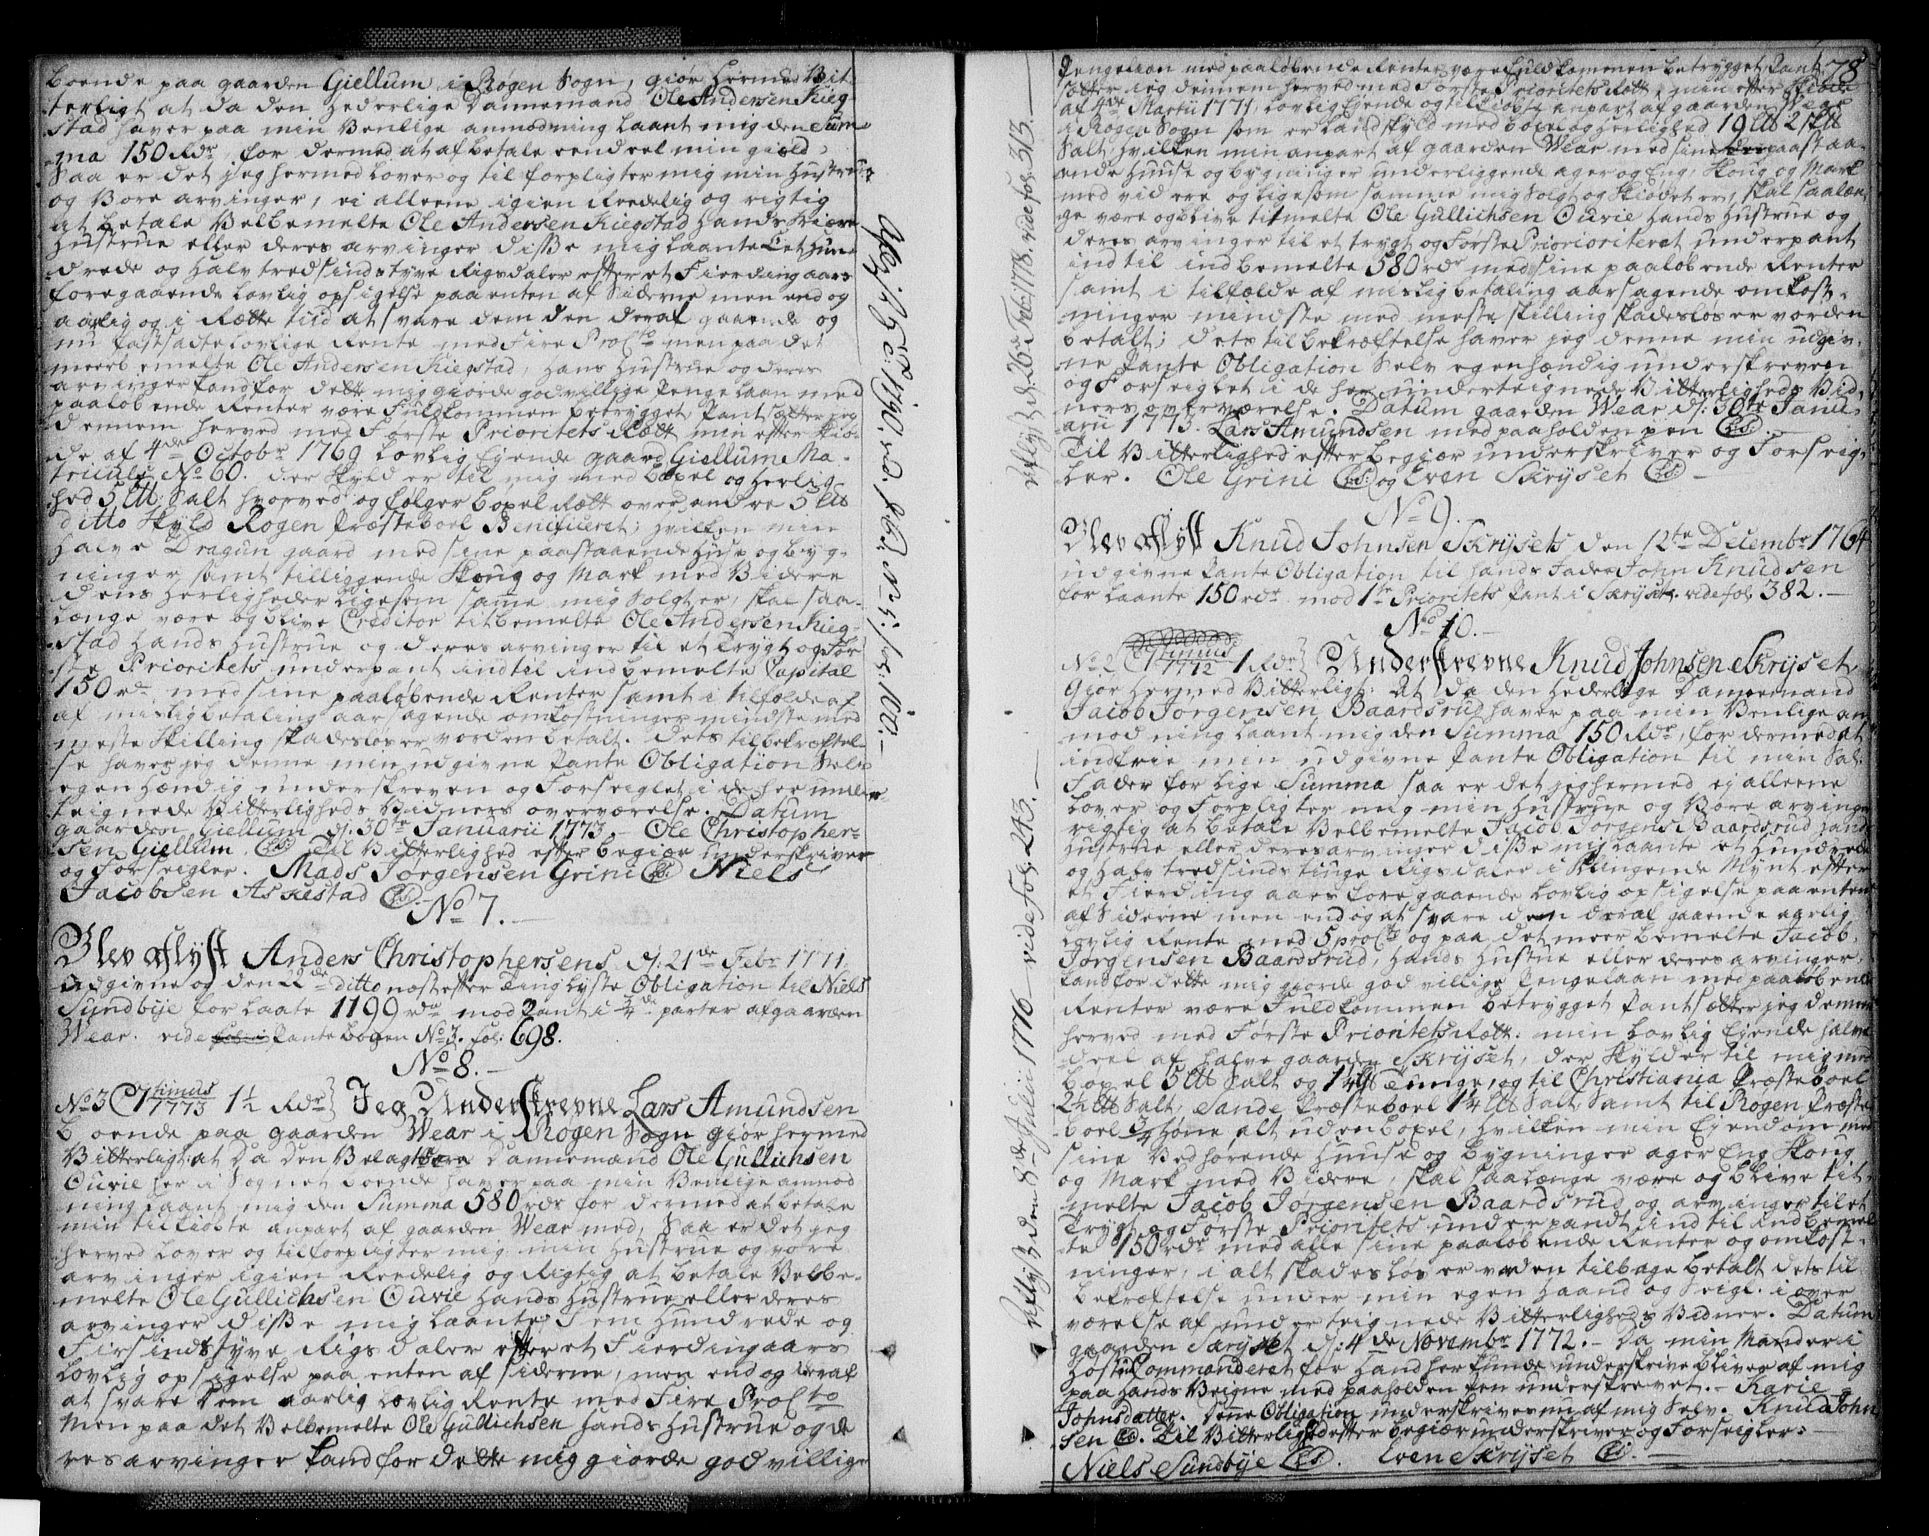 boende paa gaarden Giellum i Røgen Sogn, giør hermed Vit-
terligt at da den hederlige Dannemand Ole Andersen Kieg-
stad haver paa min Venlige anmodning laant mig den Sum-
ma 150 Rdr, for dermed at afbetale een deel min gield,
Saa er det jeg hermed lover og til forpligter mig min Hustrue
og Vore arvinger, ei alleene igien Reedelig og rigtig
at betale Velbemelte Ole Andersen Kiegstad hands Kiære
Hustrue eller deres arvinger disse mig laante Eet hun-
drede og halv tredsindstyve Rigsdaler efter et Fierding aars
foregaaende lovlig opsigelse paa enten af Siderne men end og
aarlig og i Rætte tiid at svare dem den deraf gaaende og
nu fastsatte lovlige Rente med Fire ProCto men paa det
meerbemelte Ole Andersen Kiegstad, hans Hustrue og deres
arvinger kand for dette mig giorde godvillige Penge Laan med
paaløbende Renter være Fuldkommen betrygget, Pantsætter jeg
dennem herved med Første Prioritets Rætt min efter Skiø-
de af 4de Octobr 1769 lovlig Ejende gaard Giellum Ma-
triculs No 60. der Skyld er til mig med Bøxel og herlig-
hed 5 Lit: Salt hvorved og følger boxel Rætt over andre 5 Lit
ditto Skyld Rogen Præsteboel Benificeret; hvilken min
halve Dragun gaard med sine paastaaende Huse og byg-
ninger samt tilliggende Skoug og Mark med Videre
dens herligheder ligesom samme mig Solgt er, skal saa-
længe være og blive Creditor titbemelte Ole Andersen Kieg-
stad hands Hustrue og deres arvinger til et trygt og Før-
ste Prioritets underpant indtil indbemelte Capital
150 rdr med sine paaløbende Renter samt i tilfælde af
af mislig betaling aarsagende omkostninger mindste med
meste Skilling skadesløs er vorden betalt. dets til bekræftel-
se haver jeg denne min udgivne Pante Obligation Selv
egenhændig underskreven og Forseiglet i de her under-
teignede Vitterligheds Vidners overværelse. Datum
gaarden Giellum d: 30te Januarii 1773. – Ole Christopher-
sen Giellum. (LS) Til Vitterlighed efter begiær underskriver
og Forseigler. Mads Jorgensen Grini (LS) Niels
Jacobsen Askestad (LS).
No 7.
Blev aflyst Anders Christophersens d: 21de Febr 1771.
udgivne og den 22de ditto næst efter Ting lyste Obligation til Niels
Sundbye for laate 1199 rdr mod Pant i 3/4de parter af gaarden
Wear. vide Pante bogen No 3. fol: 698.
No 8.
No 3 C 1 timus 1773 1½ Rdr} Jeg Underskrevne Lars Amundsen
boende paa gaarden Wear i Rogen Sogn giør hermed
Vitterligt. at Da Den Velagtbare Dannemand Ole Gullichsen
Ouvie her i Sognet boende haver paa min Venlige anmod
ning laant mig den Summa 580 rdr for dermed at betale
min tilkiøbte anpart af gaarden Wear med, Saa er det jeg
herved lover og tilforpligter mig min Hustrue og vore
arvinger igien Reedelig og Rigtig at betale Velbe-
melte Ole Gullichsen Ouvie hands Hustrue eller deres
arvinger disse mig laante Fem Hundrede og
Firsindstyve Rigs daler efter et Fierdingaars
lovlig opsigelse paa enten af siderne, men end og deraf
at svare Dem aarlig lovlig Rente med Fire ProCto
Men paa det Velbemelte Ole Gullichsen hands Hustrue og de
res arvinger kand for dette mig giorde godvillige
Aflyst d: 140 rd. fol: No 5. 100. –
78
Pengelaan med paaløbende Renter være fuldkommen betrygget Pant
sætter jeg dennem herved med Første Prioritets Rætt, min efter Skiøde
af 4de Martii 1771, lovlig Ejende og til kiøbte anpart af gaarden Wear
i Røgen Sogn som er Landskyld med boxel og herlighed 19 Lit 2 Lit
Salt hvilken min anpart af gaarden Wear med sine paastaa-
ende Huuse og bygninger underliggende ager og Eng, Skoug og Mark
med videre og ligesom samme mig Solgt og Skiødet er, skal saalæn-
ge være og blive titmelte Ole Gullichsen Ouvie hands Hustrue og
deres arvinger til et trygt og Første Priorioriteret underpant
indtil indbemelte 580 rdr med sine paaløbende Renter
samt i tilfælde af mislig betaling aarsagende omkost-
ninger mindste med meste skilling skadesløs er vorden
betalt; dets til bekræftelse haver jeg denne min udgiv-
ne Pante Obligation Selv egenhændig underskreven
og Forseiglet i de her underteignede Vitterligheds Vid-
ners overværelse. Datum gaarden Wear d: 30te Janu-
arii 1773. Lars Amundsen med paaholden pen (LS). –
Til Vitterlighed efter begiær underskriver og Forseig-
ler. Ole Grini (LS) og Even Skrÿset (LS) –
No 9.
Blev aflyst Knud Johnsen Skrÿsets den 12te Decembr 1764
udgivne Pante Obligation til hands Fader John Knudsen
for laante 150 rdr mod 1te Prioritets Pant i Skrÿset. vide fol. 382. –
No 10. –
No 2 C 1 timus 1772 1 Rdr} Underskrevne Knud Johnsen Skrÿset
Giør hermed Vitterligt: At da den hederlige Dannemand
Jacob Jorgensen Baardsrud haver paa min Venlige an
modning laant mig den Summa 150 Rdr, for dermed at
indfrie min udgivne Pante Obligation til min Sal:
Fader for lige Summa saa er det jeg hermed ej alleene
lover og Forpligter mig min Hustrue og Vore arvinger
rigtig at betale Velbemelte Jacob Jorgens: Baardsrud hands
Hustrue eller deres arvinger disse mig laante et hundrede
og halv tredsindstiuge Rigsdaler i Klingende Mynt efter
et Fierding aars foregaaende lovlig opsigelse paa enten
af Siderne men end og at svare dem deraf gaaende aarlig
lovlig Rente med 5 proCto og paa det meer bemelte Jacob
Jorgensen Baardsrud, hands Hustrue eller deres arvinger,
kand for dette mig giorde godvillige Pengelaan med paaløbende
Renter være Fuldkommen betrygget Pantsætter jeg dennem
herved med Første Prioritets Rætt: min lovlig Ejende halve
deel af halve gaarden Skrÿset, der Skylder til mig med
boxel 5 Lit Salt og 1¼ Lit Tunge, og til Christiania Præsteboel
2½ Lit Salt, Sande Præsteboel 1¼ Lit Salt, Samt til Rogen Præste
boel 3/4 Høne alt uden boxel, hvilken min Ejendom med
sine Vedhørende Huuse og bygninger ager Eng Skoug
og Mark med Videre, skal saalænge være og blive tit-
melte Jacob Jørgensen Baardsrud og arvinger til et
Trygt og Første Prioritets underpandt indtil indbemel
te 150 rdr med alle sine paaløbende Renter og omkost-
ninger, i alt skadesløs er vorden tilbage betalt dets til
bekræftelse under min egen Haand og Seigl. i over
værelse af underteignede Vitterligheds Vidner. Datum
gaarden Skrÿset d: 4de Novembr 1772. – Da min Mand er i
Hostil Commanderet før hand her kunde underskrive bliver af mig
paa hands Veigne med paaholden Pen underskrevet. – Karie
Johnsdatter. Denne Obligation underskriven af mig Selv. Knud John
sen (LS). Til Vitterlighed efter begiær underskriver og Forseigler. –
Niels Sundbye (LS). Even Skrÿset (LS). –
aflyst d: 26de Febr: 1778. vide fol: 313. –
Aflyst den 8de Julii 1776 – vide fol: 243. –